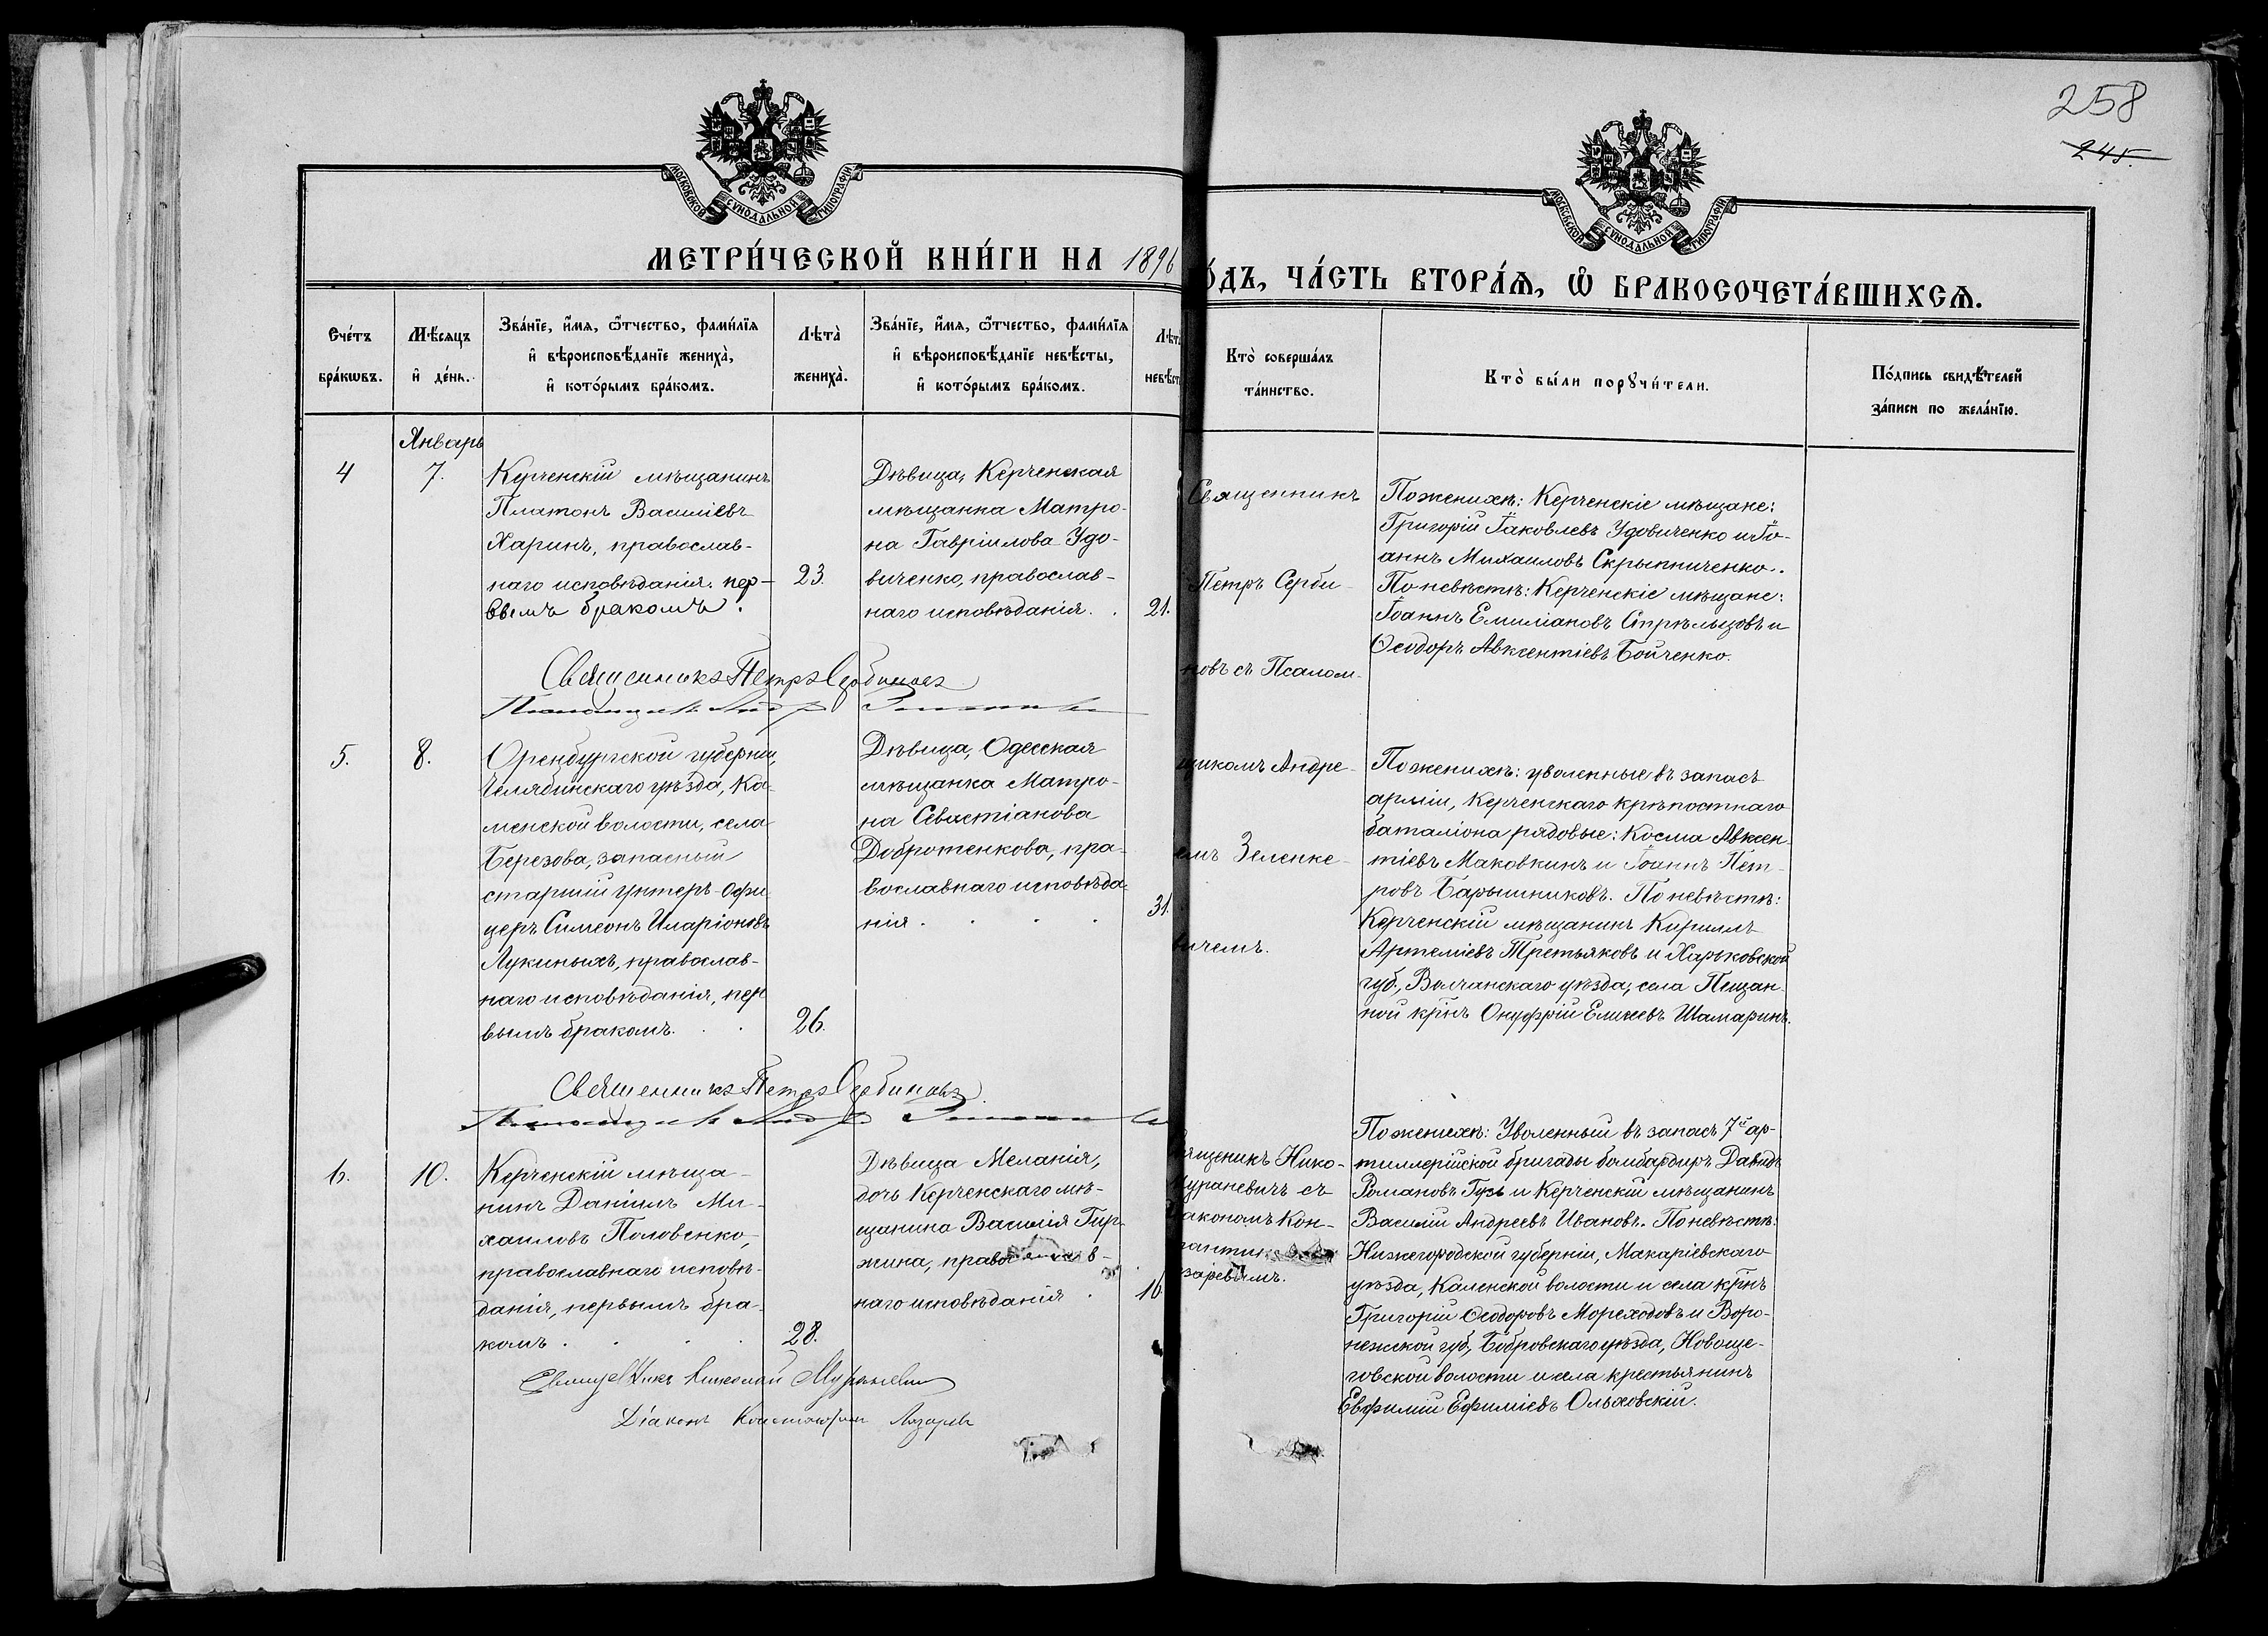 258
245.
МОСКОВСКОЙ СѴНОДАЛЬНОЙ ТИПОГРАФІИ
МОСКОВСКОЙ СѴНОДАЛЬНОЙ ТИПОГРАФІИ
МЕТРИ́ЧЕСКОЙ КНИ́ГИ НА 1896
О́ДЪ, ЧА́СТЬ ВТОРА́Ѧ, Ѡ҆ БРАКОСОЧЕТА́ВШИХСѦ.
Сче́тъ
бра́кѡвъ.
Мѣ́сяцъ
и҆ де́нь.
Зва́нїе, и҆́мѧ, ѻ҆́тчество, фами́лїѧ
и҆ вѣроисповѣ́данїе жениха̀,
и҆ кото́рымъ бра́комъ.
Лѣта̀
жениха̀.
Зва́нїе, и҆́мѧ, ѻ҆́тчество, фами́лїѧ
и҆ вѣроисповѣ́данїе невѣ́сты,
и҆ кото́рымъ бра́комъ.
Лѣт
невѣст
Кто̀ соверша́лъ
та́инство.
Кто̀ бы́ли порꙋчи́тели.
По́дпись свидѣ́телей
за́писи по жела́нїю.
Январь
4
7.
Керченскій мѣщанинъ
Платонъ Василіевъ
Харинъ, православ-
наго исповѣданія. пер-
вымъ бракомъ.
23.
Дѣвица, Керченская
мѣщанка Матро-
на Гавріилова Удо-
виченко, православ-
наго исповѣданія.
21.
Священникъ
Петръ Серби-
новъ съ Псалом-
По женихѣ: Керченскіе мѣщане:
Григорій Іаковлевъ Удовиченко и Іо-
аннъ Михаиловъ Скрыпниченко.
По невѣстѣ: Керченскіе мѣщане:
Іоаннъ Емиліановъ Стрѣльцовъ и
Ѳеодоръ Авксентіевъ Бойченко.
Священникъ Петръ Сербиновъ
5.
8.
Оренбургской губерніи,
Челябинскаго уѣзда, Ка-
менской волости, села
Березова, запасный
старшій унтеръ-офи-
церъ Симеонъ Иларіоновъ
Лукиныхъ, православ-
наго исповѣданія, пер-
вымъ бракомъ.
26.
Дѣвица, Одесская
мѣщанка Матро-
на Севастіанова
Добротенкова, пра-
вославнаго исповѣда-
нія.
31.
щикомъ Андре-
емъ Зеленке-
вичемъ.
По женихѣ: уволенные въ запасъ
арміи, Керченскаго крѣпостнаго
баталіона рядовые: Косма Авксен-
тіевъ Маковкинъ и Іоаннъ Пет-
ровъ Барышниковъ. По невѣстѣ:
Керченскій мѣщанинъ Кириллъ
Артеміевъ Третьяковъ и Харьковской
губ., Волчанскаго уѣзда, села Пещан-
ной крнъ Онуфрій Елисеевъ Шамаринъ.
Священникъ Петръ Сербиновъ.
6.
10.
Керченскій мѣща-
нинъ Даніилъ Ми-
хаиловъ Половенко,
православнаго исповѣ-
данія, первымъ бра-
комъ.
28.
Дѣвица Меланія,
дочь Керченскаго мѣ-
щанина Василія Гир-
жина, правос
наго исповѣданія
16.
ященикъ Нико-
Мураневичъ съ
аконом Кон-
заревымъ.
По женихѣ: Уволенный въ запасъ 7й ар-
тиллерійской бригады бомбардиръ Давидъ
Романовъ Гузь и Керченскій мѣщанинъ
Василій Андреевъ Ивановъ. По невѣстѣ:
Нижегородской губерніи, Макаріевскаго
уѣзда, Каменской волости и села крнъ
Григорій Ѳеодоровъ Мореходовъ и Воро-
нежской губ., Бобровскаго уѣзда, Новоще-
говской волости и села крестьянинъ
Евфимій Ефиміевъ Ольховскій.
Священникъ Николай Мураневич
Діаконъ Константин Лазарев